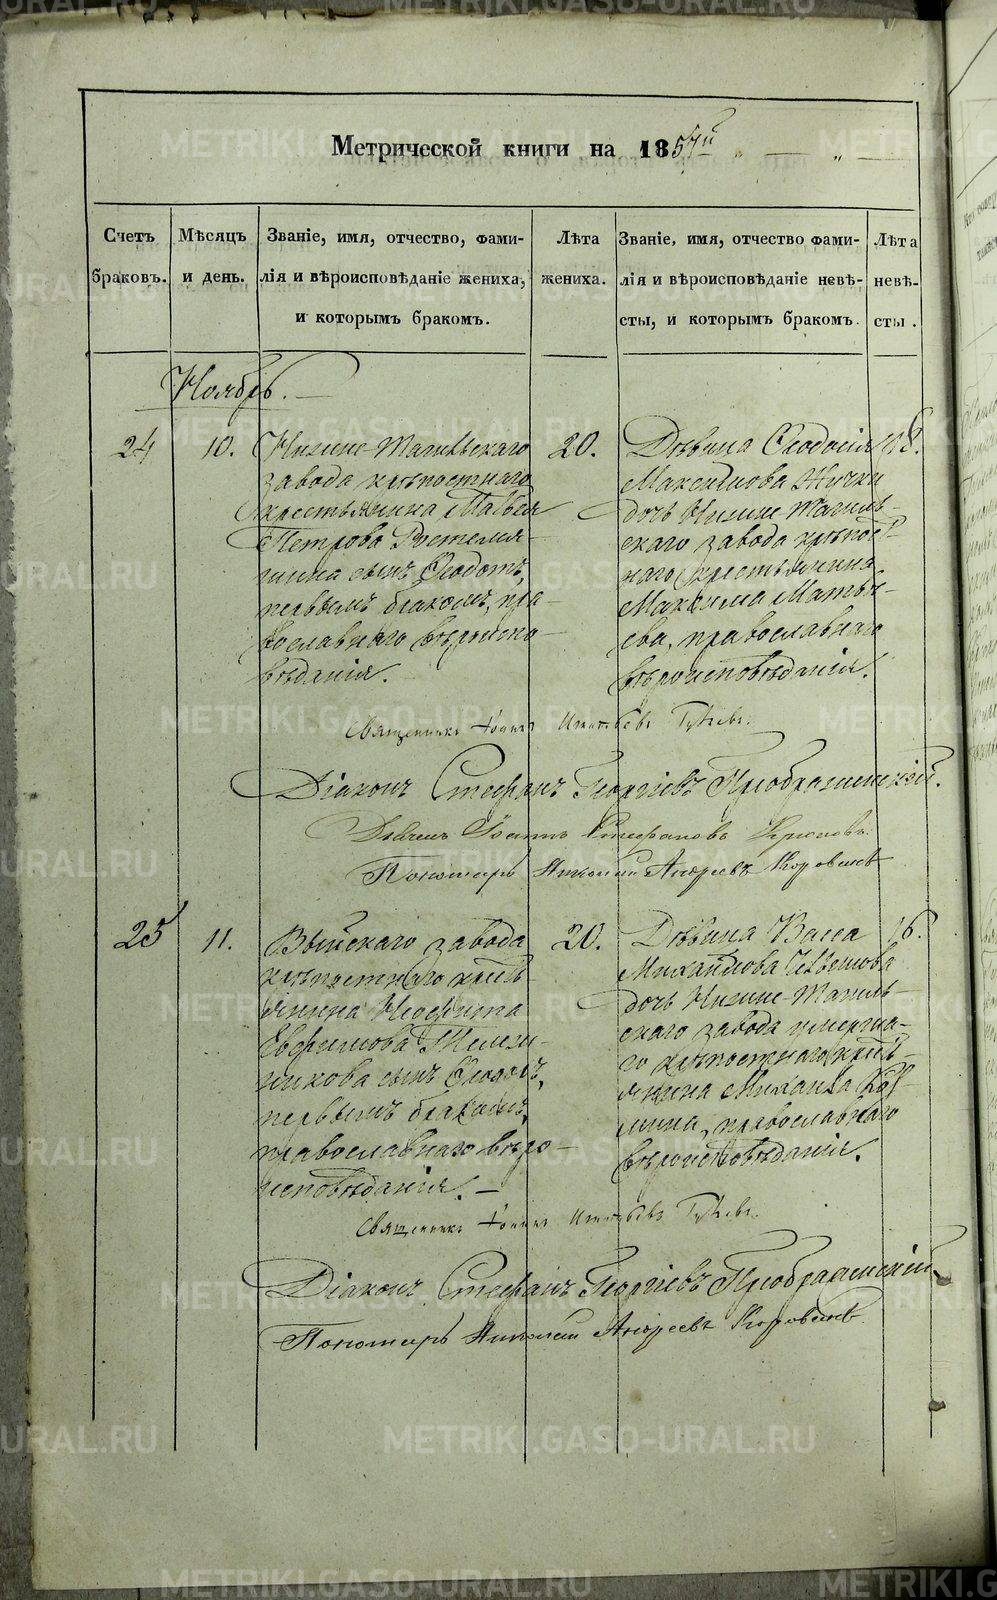 Метрической книги на 1857й
Счетъ браковъ.
Мѣсяцъ и день.
Званіе, имя, отчество, фами-
лія и вѣроисповѣданіе жениха,
и которымъ бракомъ.
Лѣта жениха.
Званіе, имя, отчество фами-
лія и вѣроисповѣданіе невѣ-
сты, и которымъ бракомъ.
Лѣта невѣ-
сты.
Ноябрь.
24
10.
Нижне-Тагильскаго
завода крѣпостнаго
крестьянина Матвея
Петрова
сынъ Ѳеодотъ,
первымъ бракомъ, пра-
вославнаго вѣроиспо-
вѣданія.
20.
Дѣвица Ѳеодосія
Максимова
дочь Нижне-Тагиль-
скаго завода крѣпост-
наго крестьянина
Максима Матвѣ-
ева, православнаго
вѣроисповѣданія.
18.
Священникъ Іоаннъ Игнатьевъ
Діаконъ Стефанъ Георгіевъ Преображенскій.
Іоаннъ Стефановъ
Пономарь Николай Андреевъ Коровинъ
25
11.
Выйскаго завода
крѣпостнаго кресть-
янина Неофита
Евфимова
сынъ
первымъ бракомъ,
православнаго вѣро-
исповѣданія.
20.
Дѣвица Васса
Михайлова
дочь Нижне-Тагиль-
скаго завода умерша-
го крѣпостнаго кресть-
янина Михаила
православнаго
вѣроисповѣданія.
16.
Священникъ Іоаннъ Игнатьевъ
Діаконъ Стефанъ Георгіевъ Преображенскій.
Пономарь Николай Андреевъ Коровинъ.
METRIKI.GASO-URAL.RU